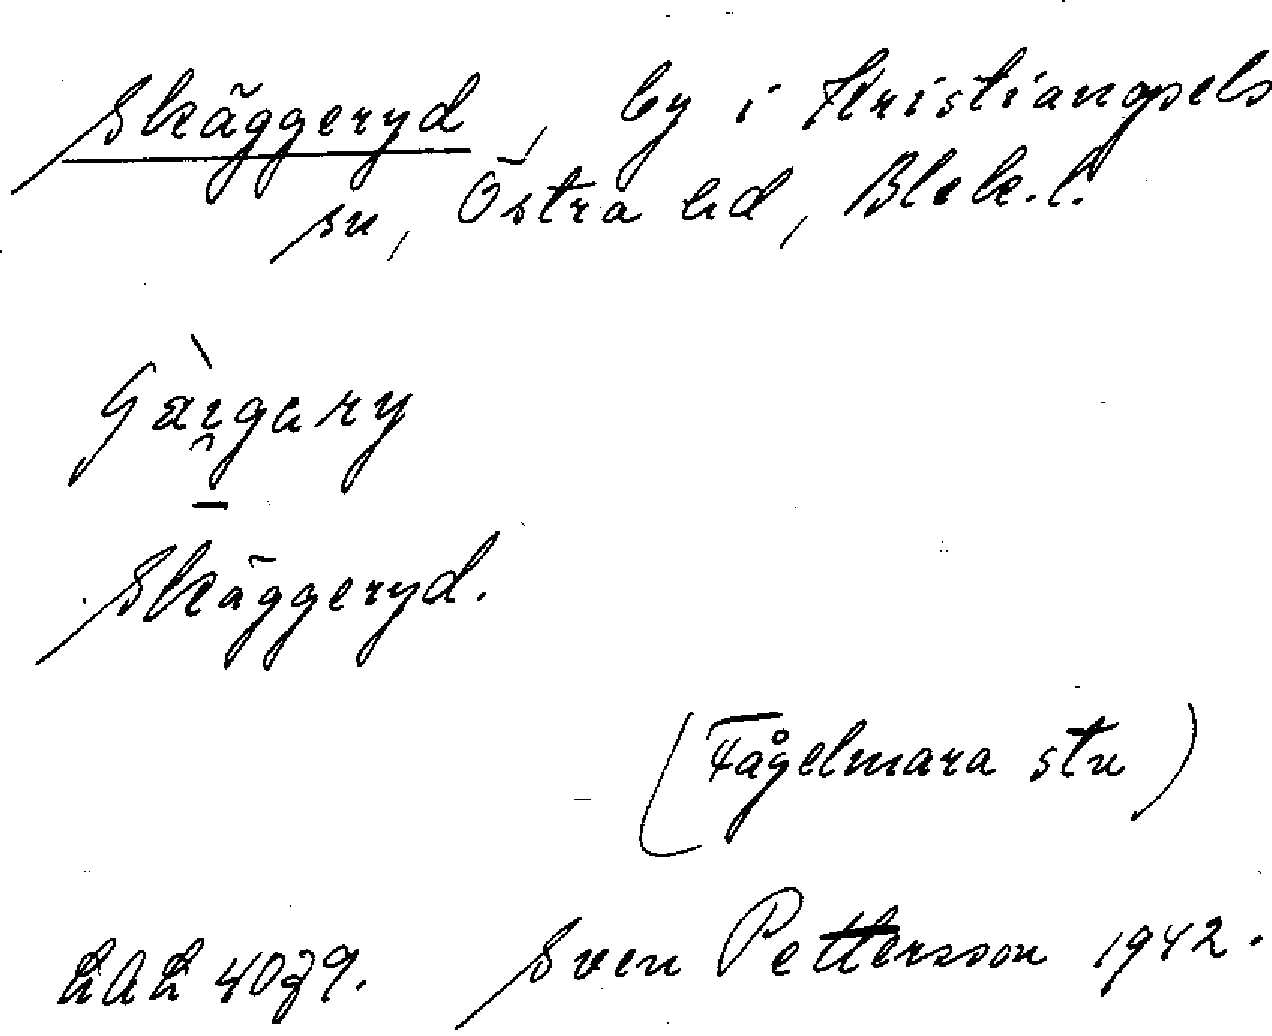 Skäggeryd, by i Kristianopels
sn, Östra hd, Blek. l.
Skäggeryd.
(Fågelmara stn)
LAL 4079. Sven Pettersson 1942.